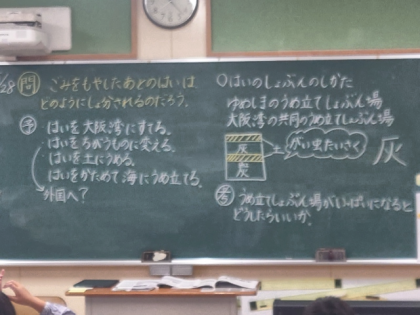 /28 問 ごみをもやしたあとのはいは、
どのようにしょぶんされるのだろう。
予 はいを大阪湾にすてる。
はいをちがうものに変える。
はいを土にうめる。
はいをかためて海にうめ立てる。
外国へ?
○はいのしょぶんのしかた
ゆめしまのうめ立てしょぶん場
大阪湾の共同のうめ立てしょぶん場
灰
炭
土
がい虫たいさく
灰
考 うめ立てしょぶん場がいっぱいになると
どうしたらいいか。